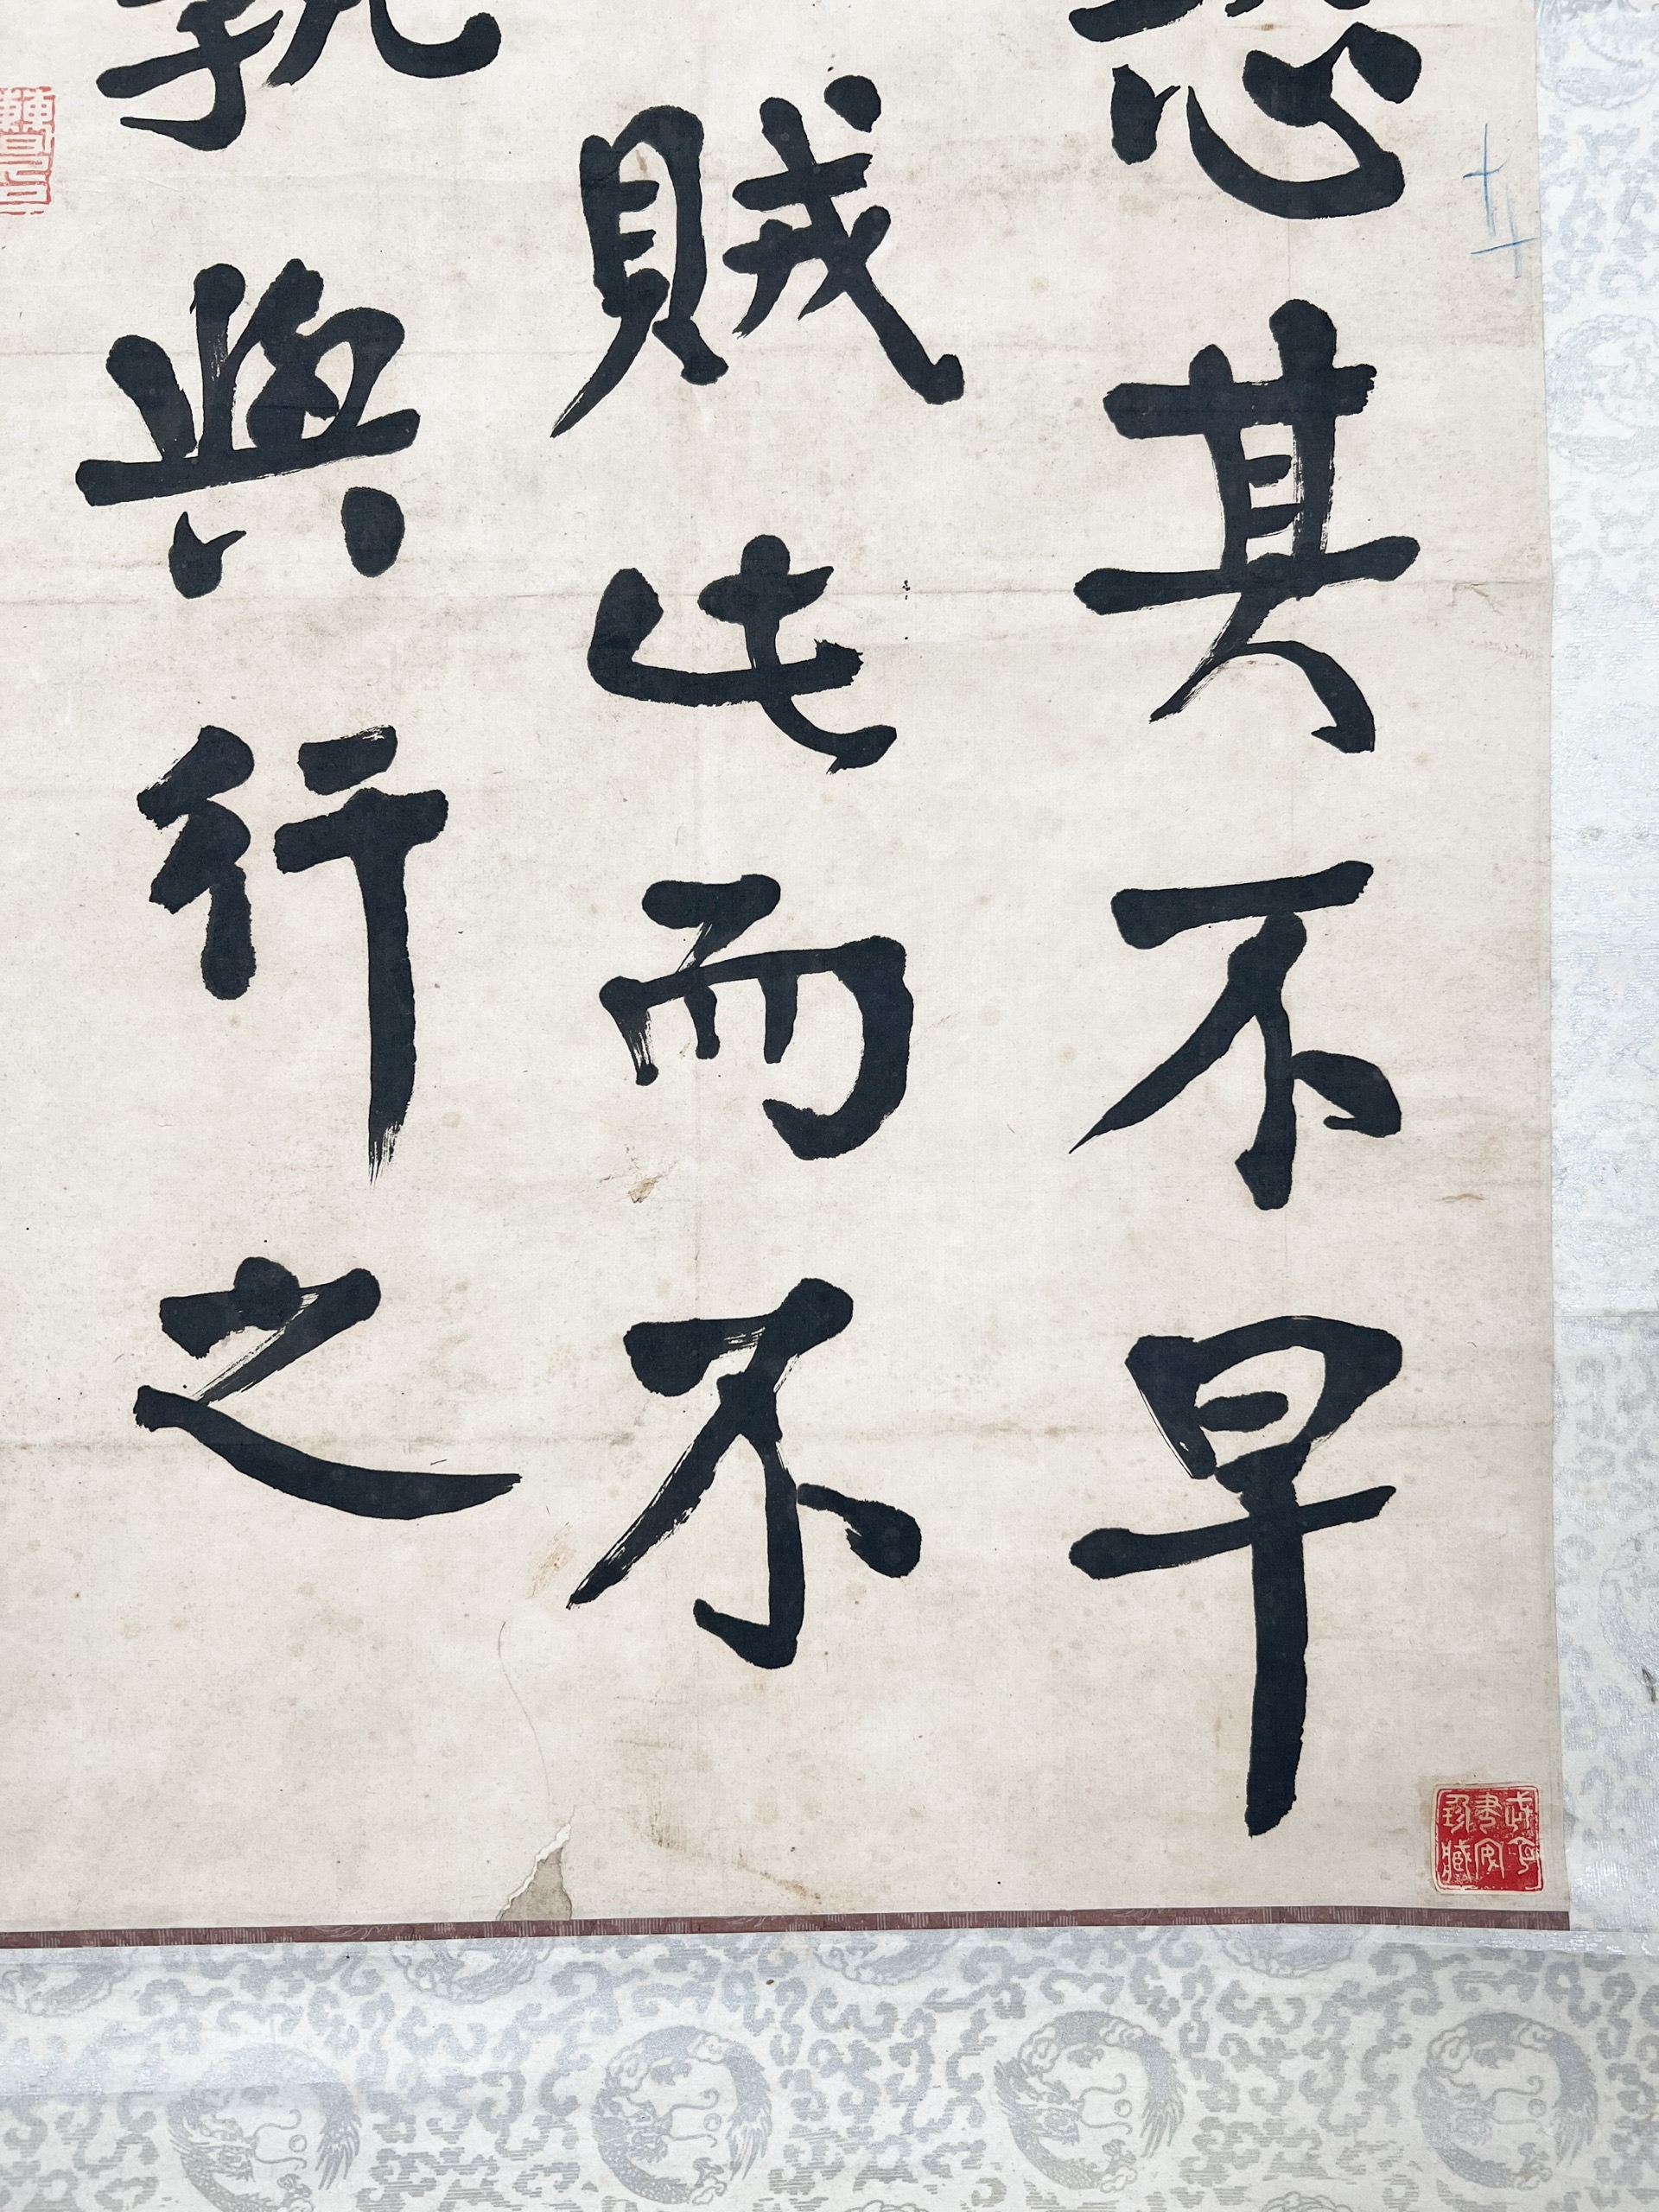 恐其不早
賊此而不
孰與行之